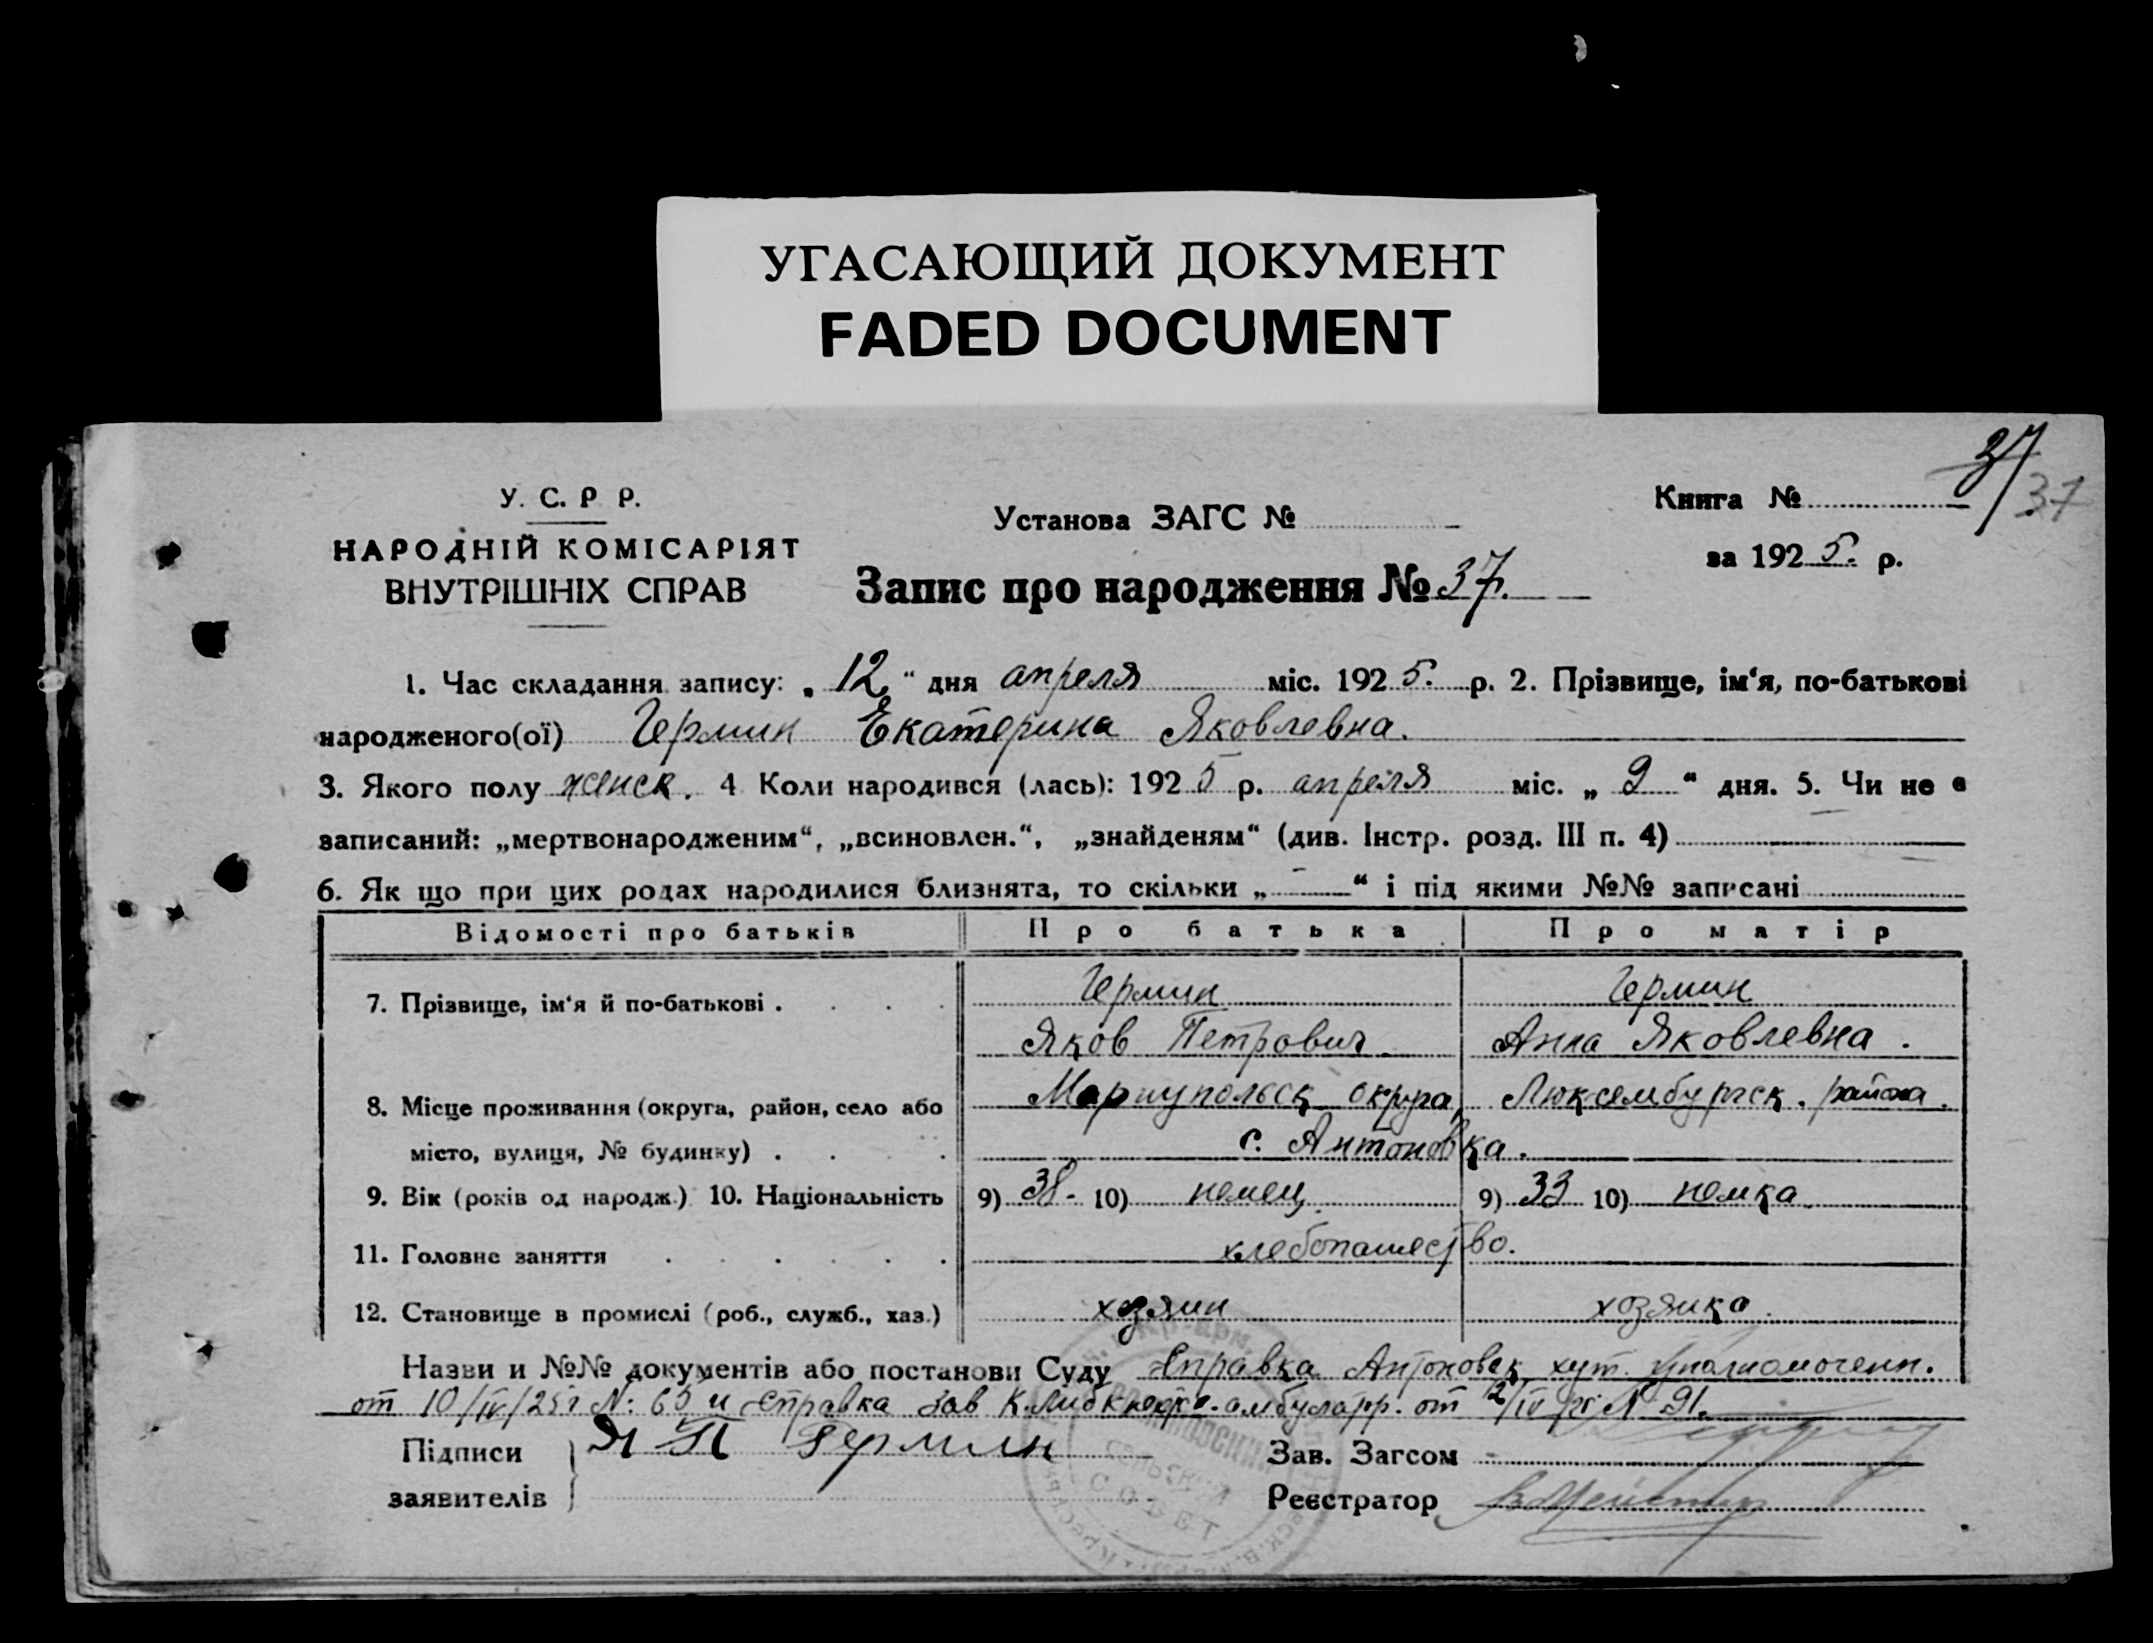 УГАСАЮЩИЙ ДОКУМЕНТ
FADED DOCUMENT
37
37
У. С. Р. Р.
НАРОДНІЙ КОМІСАРІЯТ
ВНУТРІШНІХ СПРАВ
Установа ЗАГС №
Книга №
за 1925. р.
Запис про народження № 37.
1. Час складання запису: „12“ дня апреля міс. 1925. р. 2. Прізвище, ім‘я, по-батькові
народженого(ої) Гермин Екатерина Яковлевна.
3. Якого полу женск. 4 Коли народився (лась): 1925 р. апреля міс. „9“ дня. 5. Чи не є
записаний: „мертвонародженим“, „всиновлен.“, „знайденям“ (див. Інстр. розд. III п. 4)
6. Як що при цих родах народилися близнята, то скільки „ — “ і під якими №№ записані
Відомості про батьків Про батька Про матір
7. Прізвище, ім‘я й по-батькові . Гермин Гермин
Яков Петрович Анна Яковлевна.
8. Місце проживання (округа, район, село або Мариупольск округа, Люксембургск. района.
місто, вулиця, № будинку) . с. Антоновка.
9. Вік (років од народж.) 10. Національність 9) 38- 10) немец 9) 33 10) немка
11. Головне заняття хлебопашество.
12. Становище в промислі (роб., служб., хаз.) хозяин хозяика.
Назви и №№ документів або постанови Суду Справка Антоновск хут. Уполномоченн.
от 10/IV/25г N: 63 и Справка Зав К. амбулатр. от 2/IV N 91.
Підписи Я П Гермин Зав. Загсом
заявителів Реєстратор
СОВЕТ